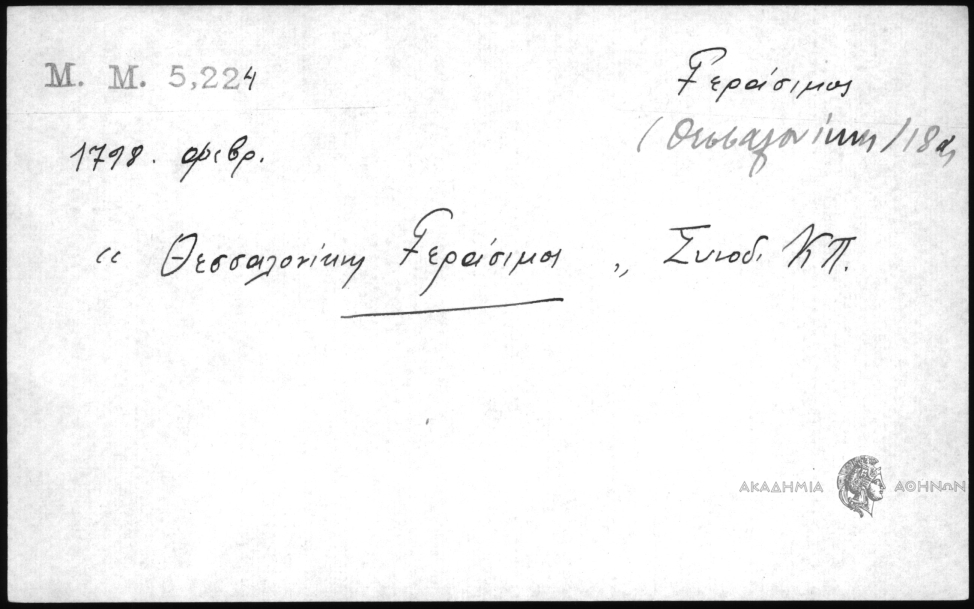 Μ. Μ. 5,224
Γεράσιμος
(Θεσσαλονίκης) 18 αι
1798. φεβρ.
“ Θεσσαλονίκης Γεράσιμος „ Συνοδ. ΚΠ.
ΑΚΑΔΗΜΙΑ ΑΘΗΝΩΝ